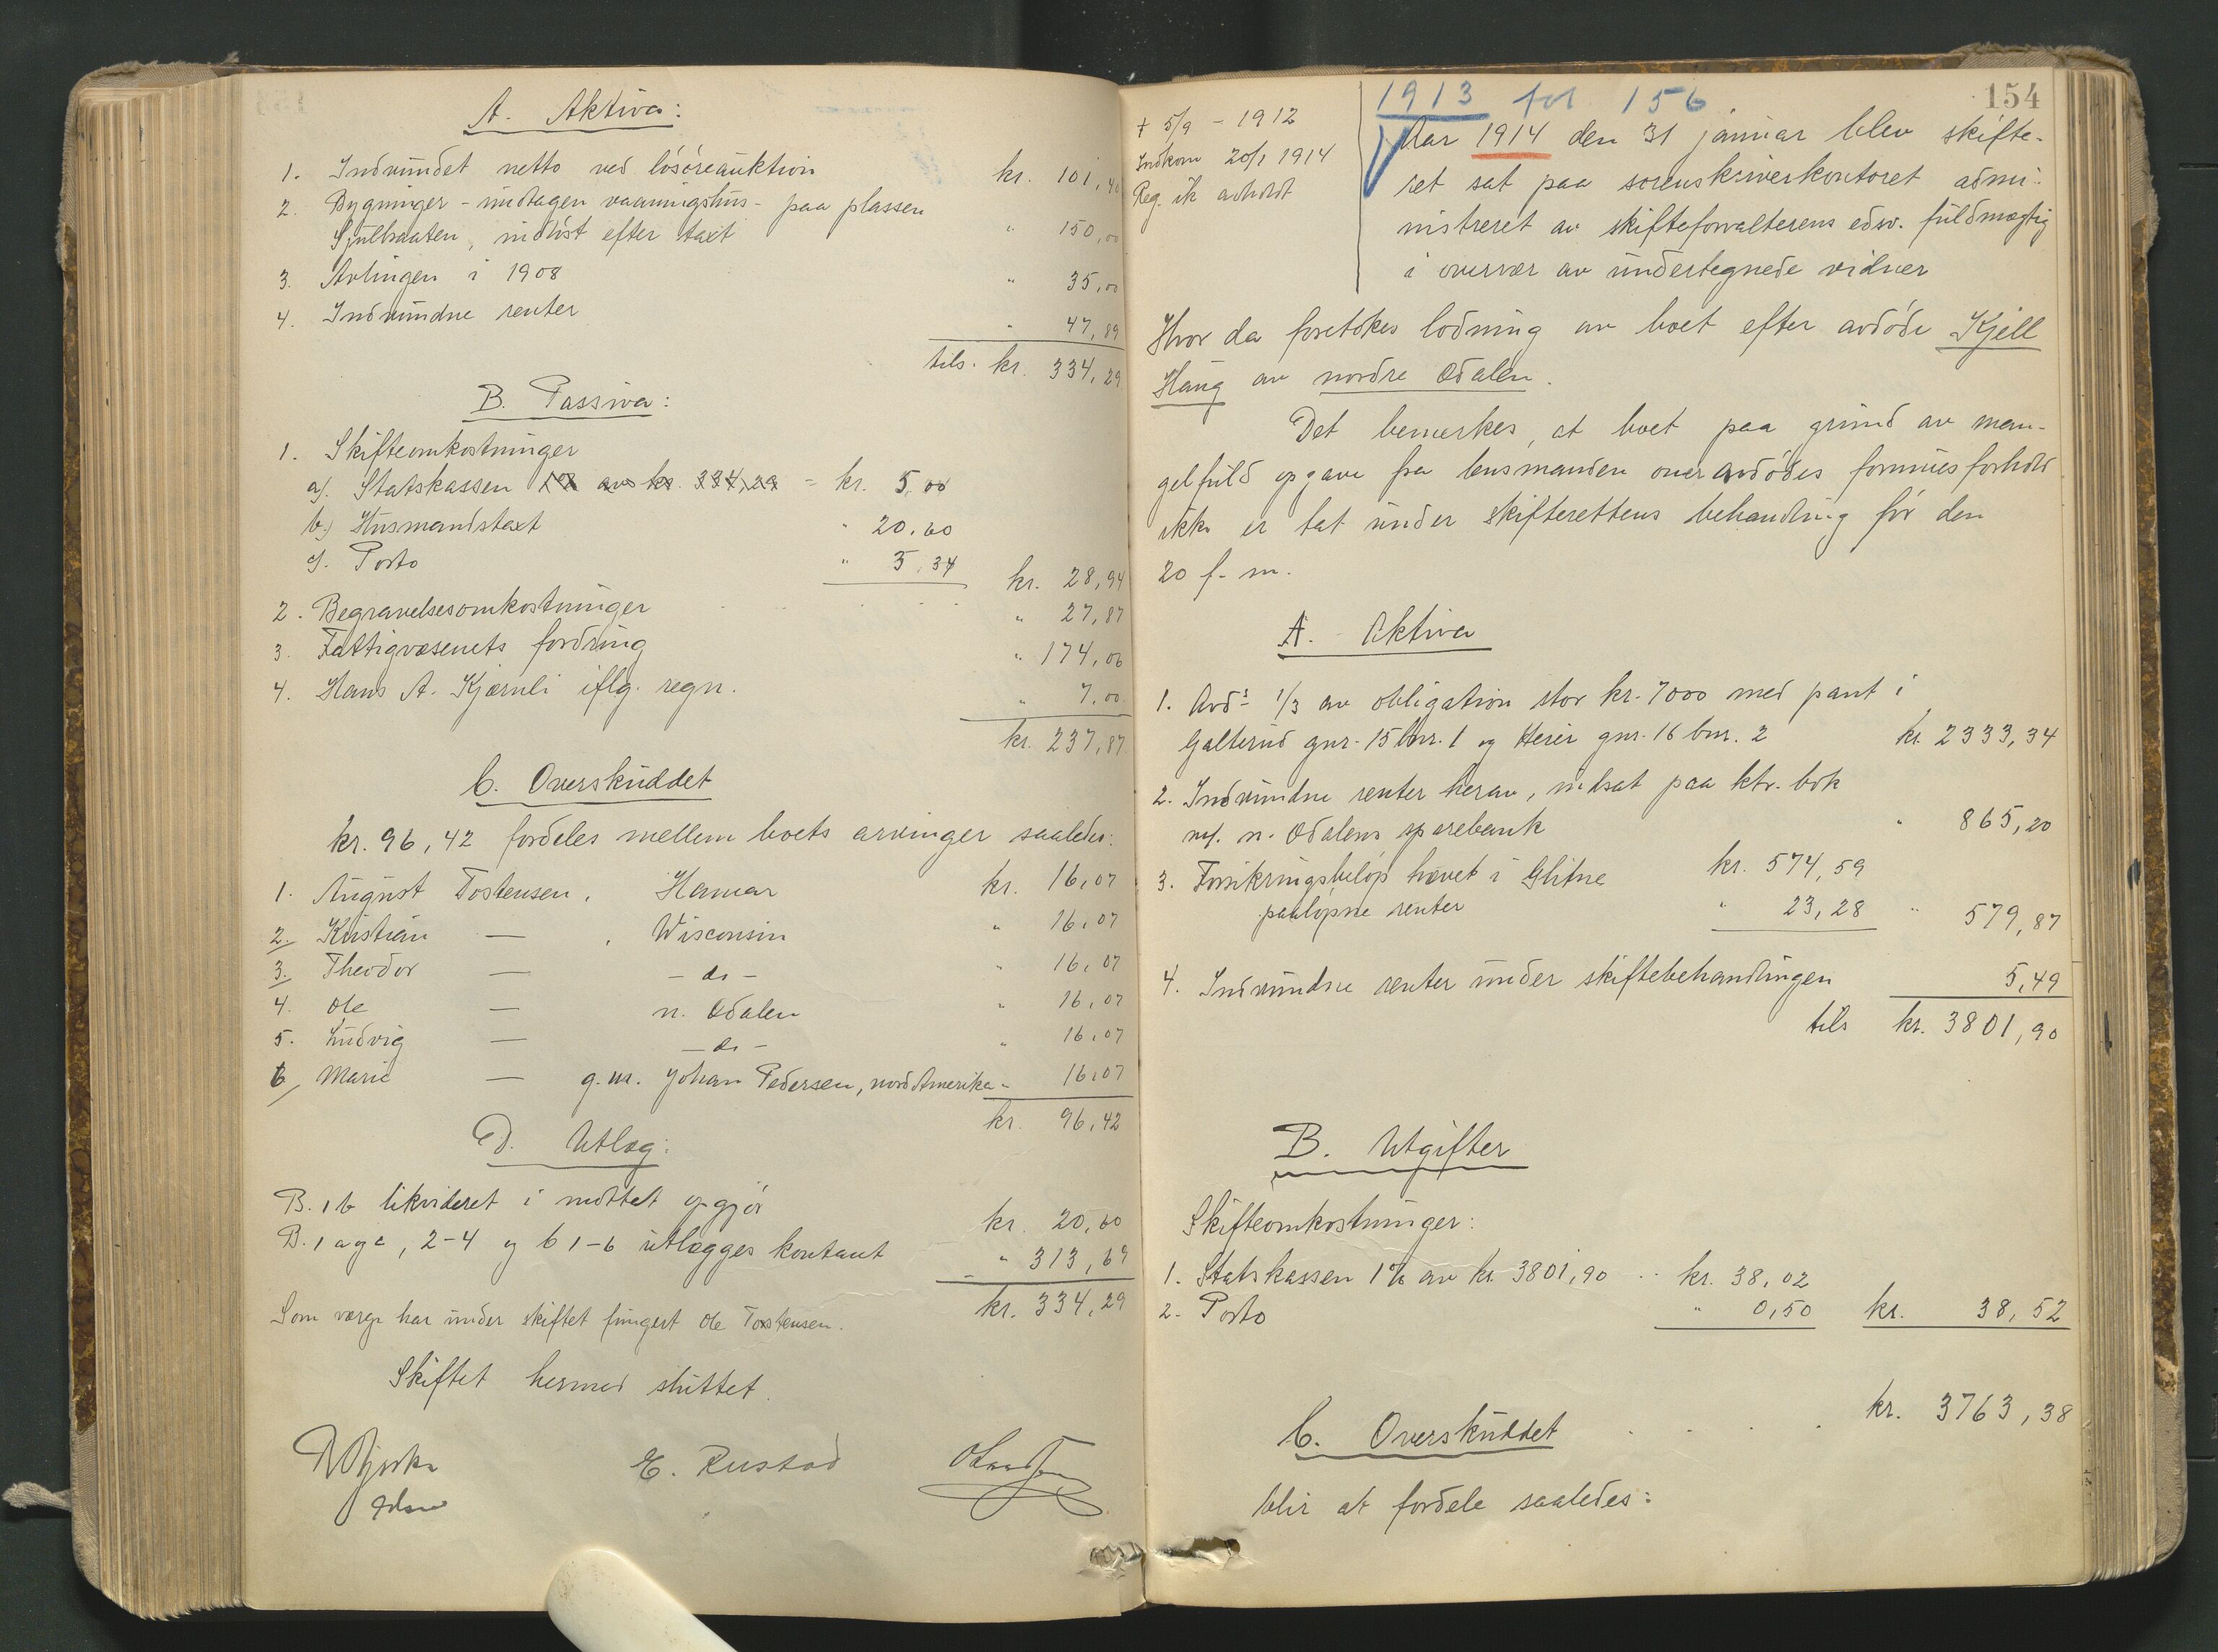 A. Aktiva:
1. Indvundet netto ved løsøreauktion kr. 101,40
2. Bygninger - undtagen vaaningshus - paa plassen
Sjulbraaten, indløst efter taxt " 150,00
3. Avlingen i 1908 " 35,00
4. Indvundne renter " 47,89
tils. kr. 334,29
B. Passiva:
1. Skifteomkostninger
a). Statskassen 1% av kr. 334,29 = kr. 5,00
b.) Husmandstaxt " 20.60
c). Porto " 3,34 kr. 28,94
2. Begravelsesomkostninger " 27,87
3. Fattigvæsenets fordring " 174,06
4. Hans A. Kjærnli iflg. regn. " 7,00
kr. 237,87
C. Overskuddet
kr. 96,42 fordeles mellem boets arvinger saaledes:
1. August Tostensen, Hamar kr. 16,07
2. Kristian — , Wisconsin " 16,07
3. Theodor — - do - " 16,07
4. Ole — n. Odalen " 16,07
5. Ludvig — - do - " 16,07
6. Marie — g. m. Johan Pedersen, nord Amerika " 16,07
kr. 96,42
D. Utlæg:
B. 1 b likvideret i mottat opgjør kr. 20,60
B. 1 a og c, 2-4 og C 1-6 utlægges kontant " 313,69
kr. 334,29
Som verge har under skiftet fungert Ole Tostensen.
Skiftet hermed sluttet.
E. Rustad
154
1913 fol 156
+ 5/9 - 1912
Indkom 20/1 1914
Reg. ik avholdt
Aar 1914 den 31 januar blev skifte-
ret sat paa sorenskriverkontoret admi-
nistreret av skifteforvalterens edsv. fuldmægtig
i overvær av undertegnede vidner
Hvor da foretokes lodning av boet efter avdøde Kjell
Haug av nordre Odalen.
Det bemerkes, at boet paa grund av man-
gelfuld opgave fra lensmanden over avdødes formuesforhold
ikke er tat under skifterettens behandling før den
20 f. m.
A. Aktiva
1. Avds 1/3 av obligation stor kr. 7000 med pant i
Galterud gnr. 15 bnr. 1 og Herir gnr. 16 bnr. 2 kr. 2333,34
2. Indvundne renter herav, indsat paa ktr. bok
n. Odalens sparebank " 865,20
3. Forsikringsbeløp hævet i Glitne kr. 574,59
paaløpne renter " 23,28 " 579,87
4. Indvundne renter under skiftebehandlingen 5,49
tils kr. 3801,90
B. Utgifter
Skifteomkostninger:
1. Statskassen 1% av kr. 3801,90 .. kr. 38,02
2. Porto " 0,50 kr. 38,52
C. Overskuddet . . . . kr. 3763,38
blir at fordele saaledes: